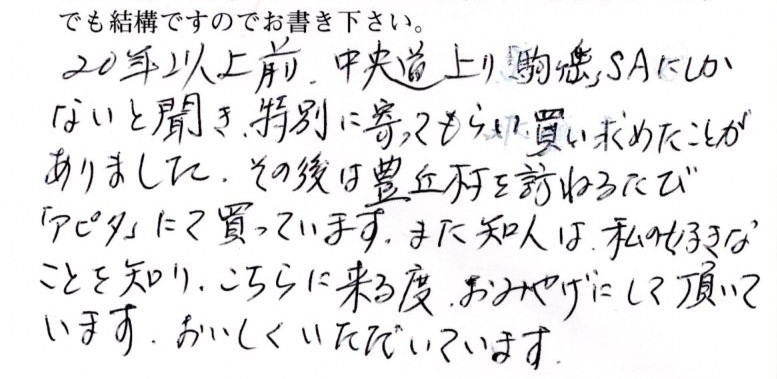 でも結構ですのでお書き下さい。
20年以上前、中央道上り駒ヶ岳SAにしか
ないと聞き、特別に寄ってもらい買い求めたことが
ありました。その後は豊丘村を訪ねるたび
「アピタ」にて買っています。また知人は、私の好きな
ことを知り、こちらに来る度、おみやげにして頂いて
います。おいしくいただいています。